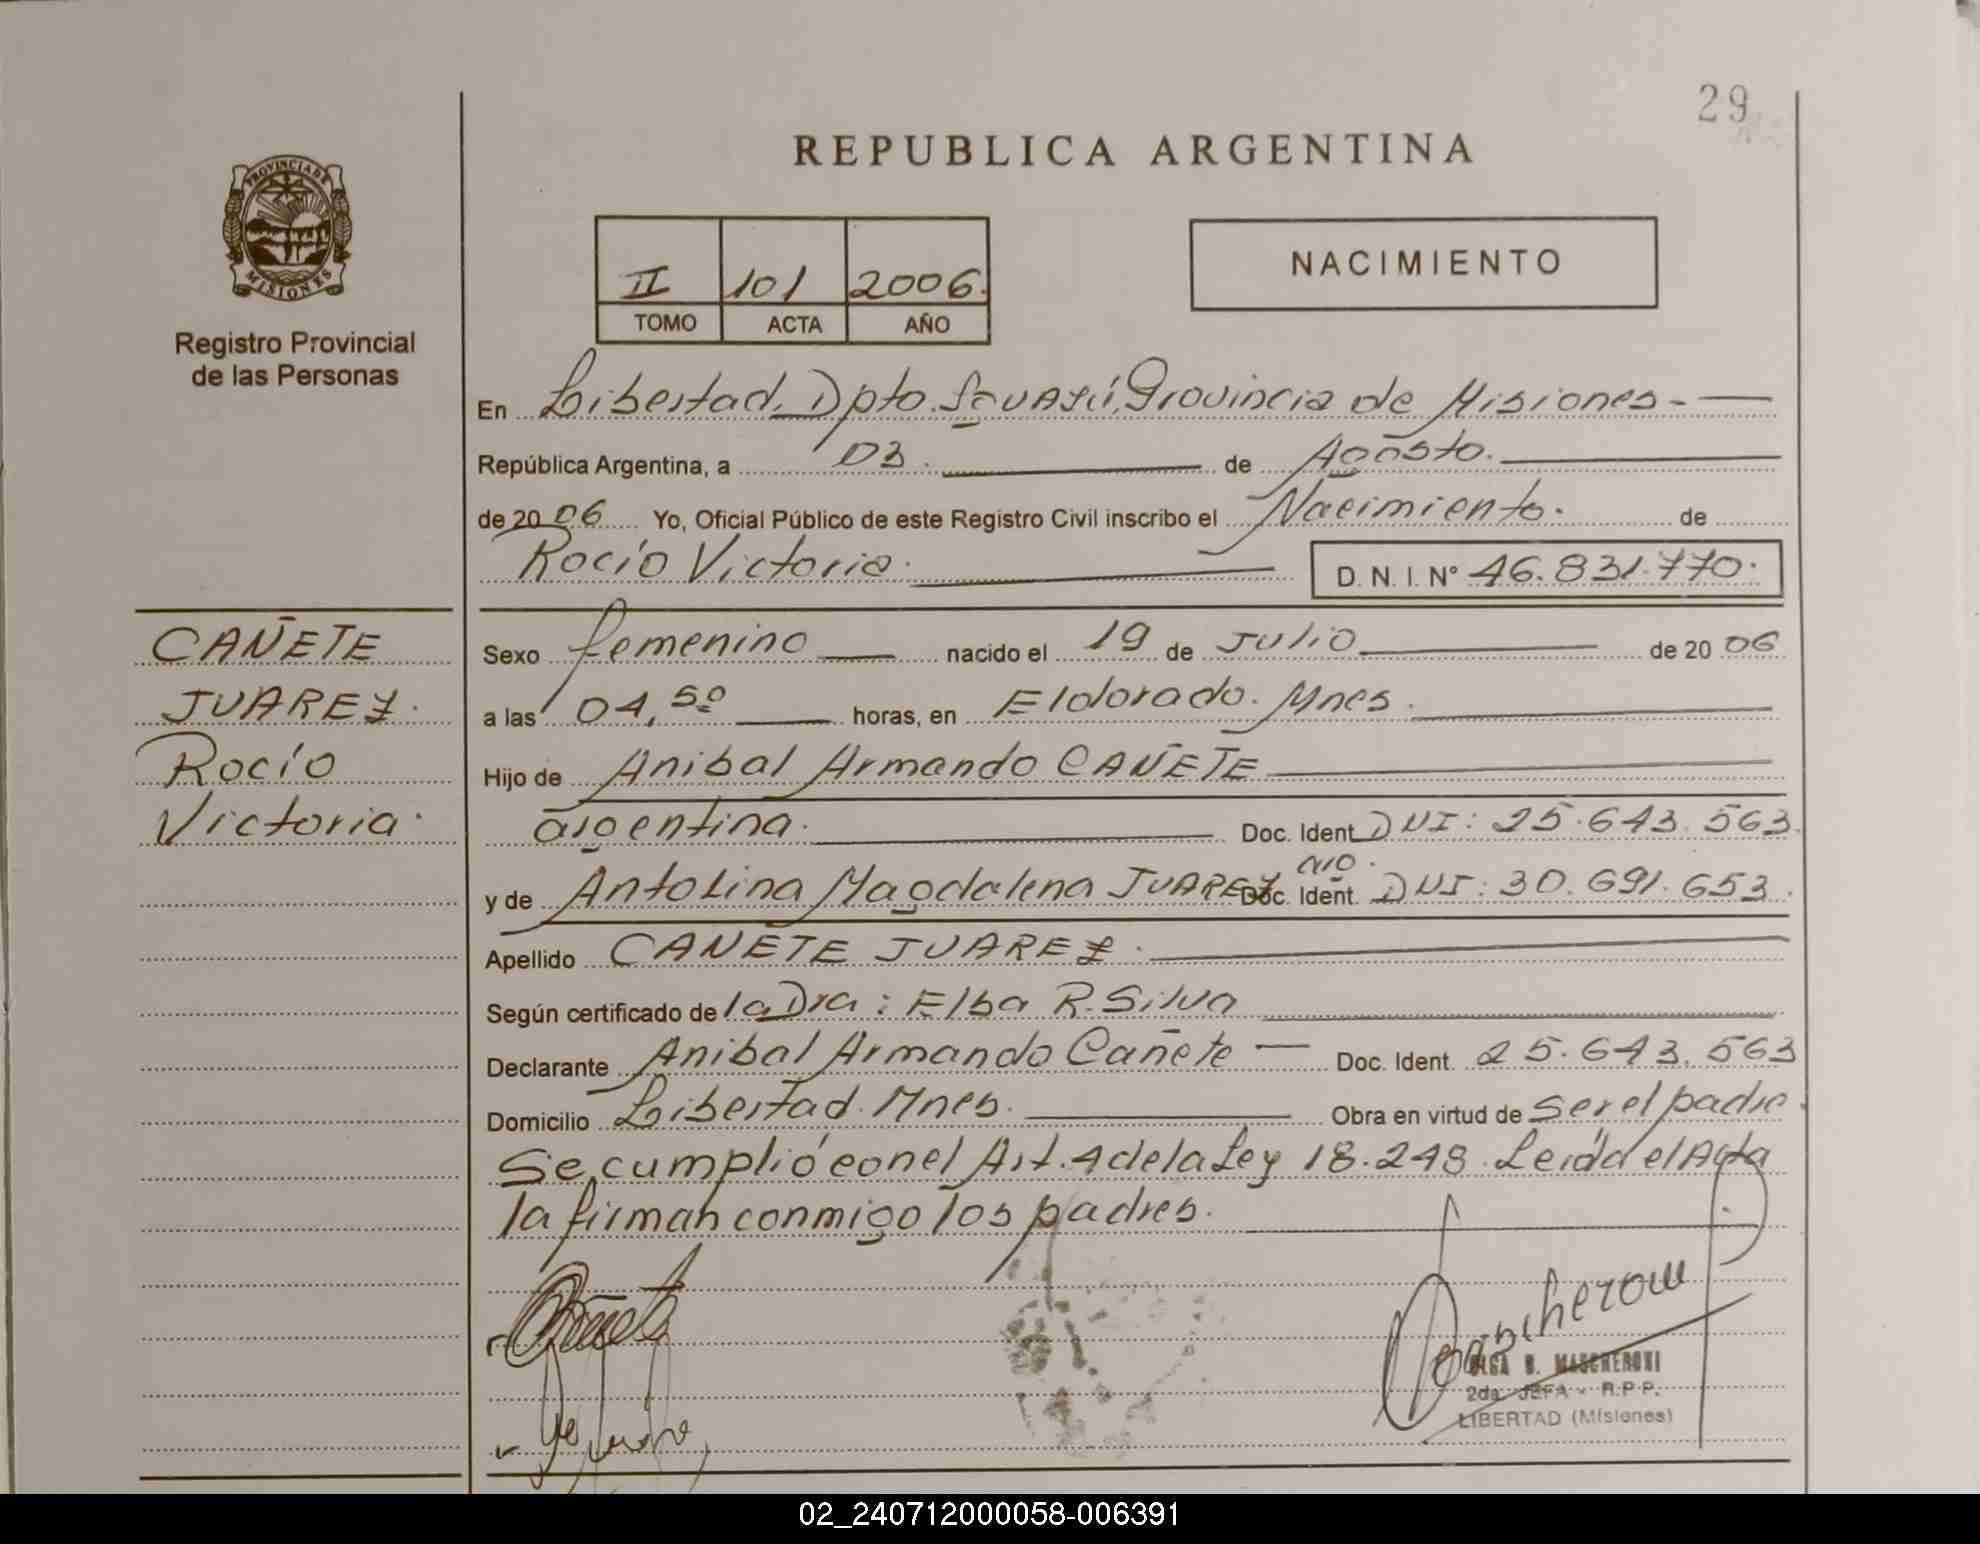 29
REPUBLICA ARGENTINA
PROVINCIA DE
MISIONES
Registro Provincial
de las Personas
II 101 2006.
TOMO ACTA AÑO
NACIMIENTO
En Libertad, Dpto. Iguazú, Provincia de Misiones -
República Argentina, a 03. de Agosto.
de 2006 Yo, Oficial Público de este Registro Civil inscribo el Nacimiento. de
Rocío Victoria. D. N. I. Nº 46.831.770.
CAÑETE
JUAREZ.
Rocío
Victoria.
Sexo femenino nacido el 19 de Julio de 2006
a las 04,50 horas, en Eldorado. Mnes.
Hijo de Anibal Armando CAÑETE
argentina. Doc. Ident. DNI: 25.643.563.
y de Antolina Magdalena JUAREZ arg. Doc. Ident. DNI: 30.691.653.
Apellido CAÑETE JUAREZ.
Según certificado de la Dra: Elba R. Silva
Declarante Anibal Armando Cañete - Doc. Ident. 25.643.563
Domicilio Libertad. Mnes. Obra en virtud de ser el padre.
Se cumplió con el Art. 4 de la Ley 18.248. Leída el Acta
la firman conmigo los padres.
Cañete
Mascheroni
OLGA N. MASCHERONI
2da. JEFA - R.P.P.
LIBERTAD (Misiones)
02_240712000058-006391